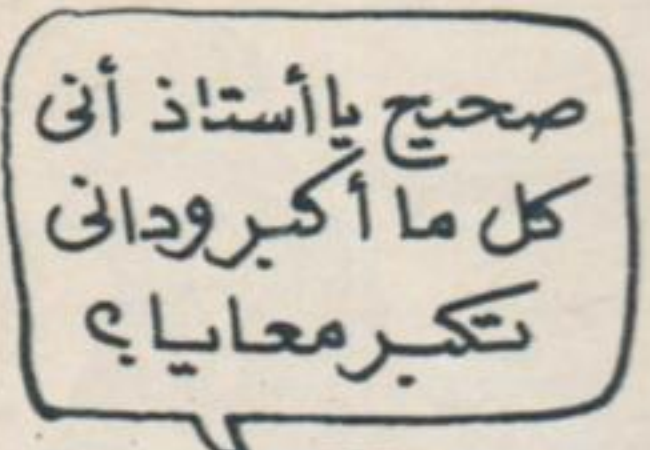 صحيح يا أستاذ أنى
كل ما أكبر ودانى
تكبر معايا؟